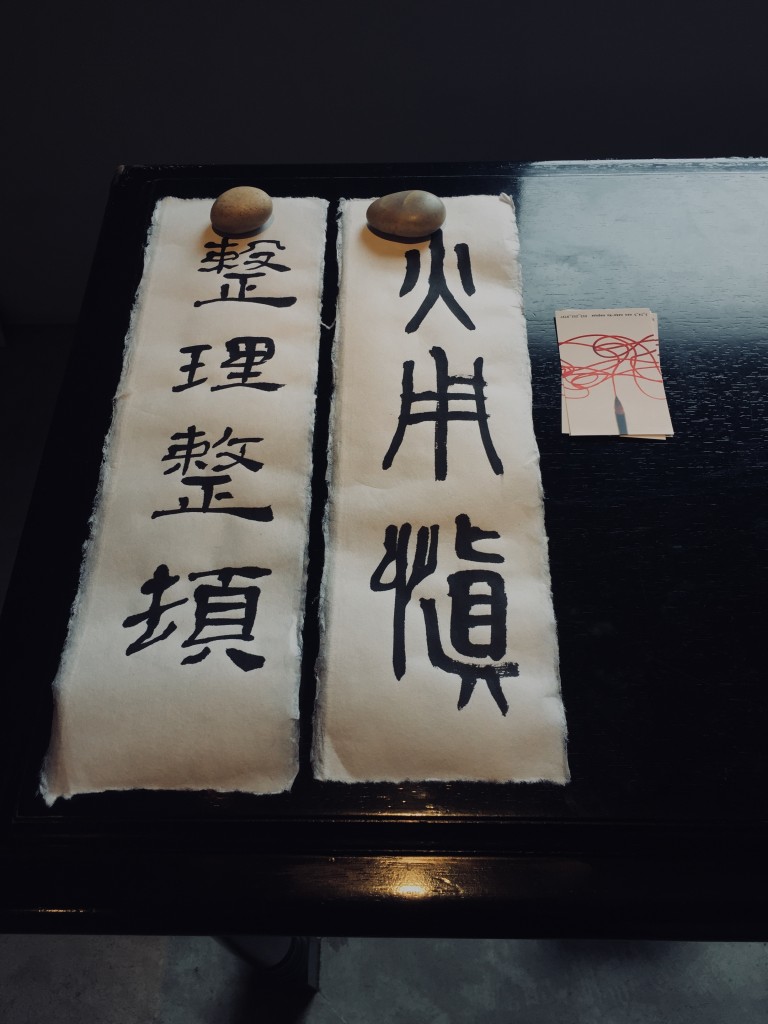 火用慎
整理整頓